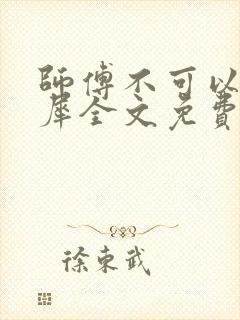 師傅不可以
犀全文免費
徐東武